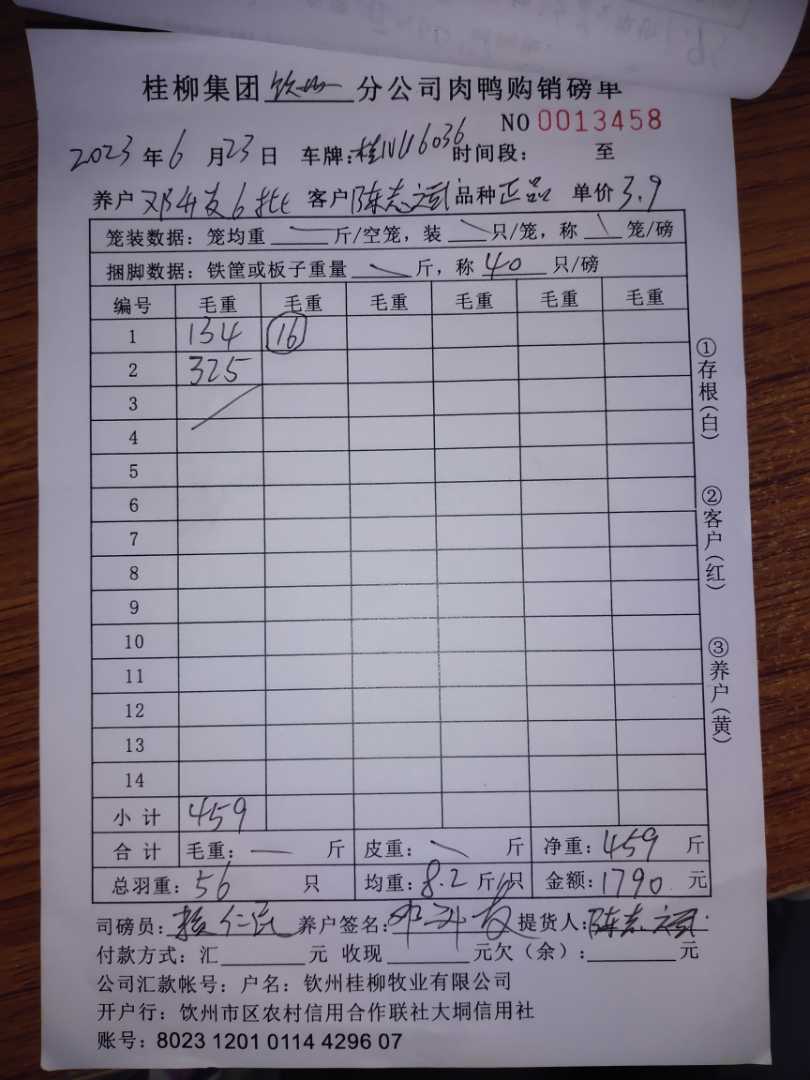 桂柳集团 钦州 分公司肉鸭购销磅单
NO 0013458
2023 年 6 月 23 日 车牌: 6036 时间段: 至
养户 邓 6批 客户 陈志斌 品种 正品 单价 3.9
笼装数据: 笼均重 斤/空笼, 装 只/笼, 称 笼/磅
捆脚数据: 铁筐或板子重量 斤, 称 40 只/磅
编号 毛重 毛重 毛重 毛重 毛重 毛重
1 134 16
2 325
3
4
5
6
7
8
9
10
11
12
13
14
小 计 459
合 计 毛重: 斤 皮重: 斤 净重: 459 斤
总羽重: 56 只 均重: 8.2 斤/只 金额: 1790 元
司磅员: 养户签名: 提货人: 陈志斌
付款方式: 汇 元 收现 元欠(余): 元
公司汇款帐号: 户名: 钦州桂柳牧业有限公司
开户行: 钦州市区农村信用合作联社大垌信用社
账号: 8023 1201 0114 4296 07
①存根(白)
②客户(红)
③养户(黄)